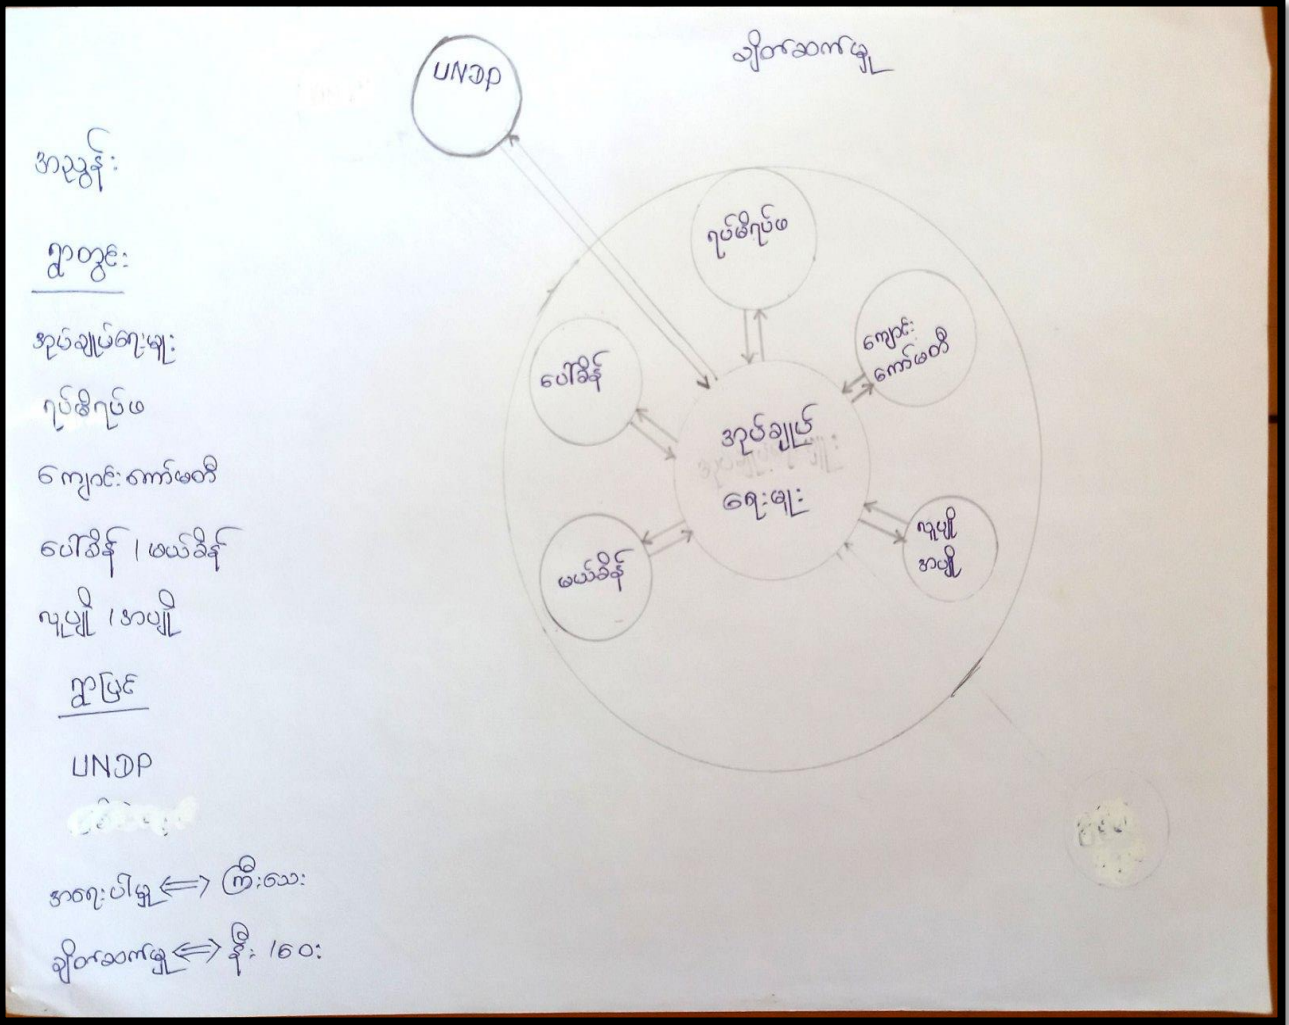 ချိတ်ဆက်မှု
UNDP
အညွှန်း
ရွာတွင်း
အုပ်ချုပ်ရေးမှူး
ရပ်မိရပ်ဖ
ကျောင်းကော်မတီ
ပေါ်ခိန် / မယ်ခိန်
လူပျို / အပျို
ရွာပြင်
UNDP
အရေးပါမှု ⟺ ကြီး၊သေး
ချိတ်ဆက်မှု ⟺ နီး / ဝေး
ရပ်မိရပ်ဖ
ကျောင်း
ကော်မတီ
ပေါ်ခိန်
အုပ်ချုပ်
ရေးမှူး
လူပျို
အပျို
မယ်ခိန်